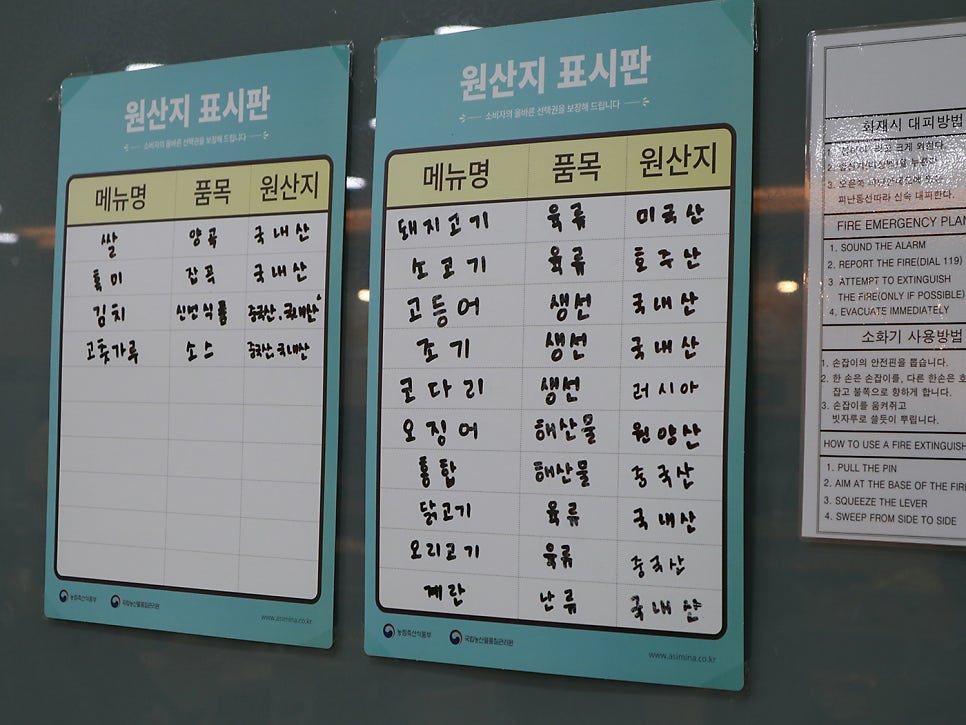 원산지 표시판
소비자의 올바른 선택권을 보장해 드립니다
메뉴명 품목 원산지
쌀 양곡 국내산
흑미 잡곡 국내산
김치 신선식품 중국산, 국내산
고춧가루 소스 중국산, 국내산
농림축산식품부 국립농산물품질관리원
www.asimina.co.kr
원산지 표시판
소비자의 올바른 선택권을 보장해 드립니다
메뉴명 품목 원산지
돼지고기 육류 미국산
소고기 육류 호주산
고등어 생선 국내산
조기 생선 국내산
코다리 생선 러시아
오징어 해산물 원양산
홍합 해산물 중국산
닭고기 육류 국내산
오리고기 육류 중국산
계란 난류 국내산
농림축산식품부 국립농산물품질관리원
www.asimina.co.kr
화재시 대피방법
크게 외친다.
3. 오른쪽
피난동선따라 신속 대피한다.
FIRE EMERGENCY PLAN
1. SOUND THE ALARM
2. REPORT THE FIRE(DIAL 119)
3. ATTEMPT TO EXTINGUISH
THE FIRE(ONLY IF POSSIBLE)
4. EVACUATE IMMEDIATELY
소화기 사용방법
1. 손잡이의 안전핀을 뽑습니다.
2. 한 손은 손잡이를, 다른 한손은 호
잡고 불쪽으로 향하게 합니다.
3. 손잡이를 움켜쥐고
빗자루로 쓸듯이 뿌립니다.
HOW TO USE A FIRE EXTINGUISH
1. PULL THE PIN
2. AIM AT THE BASE OF THE FIRE
3. SQUEEZE THE LEVER
4. SWEEP FROM SIDE TO SIDE